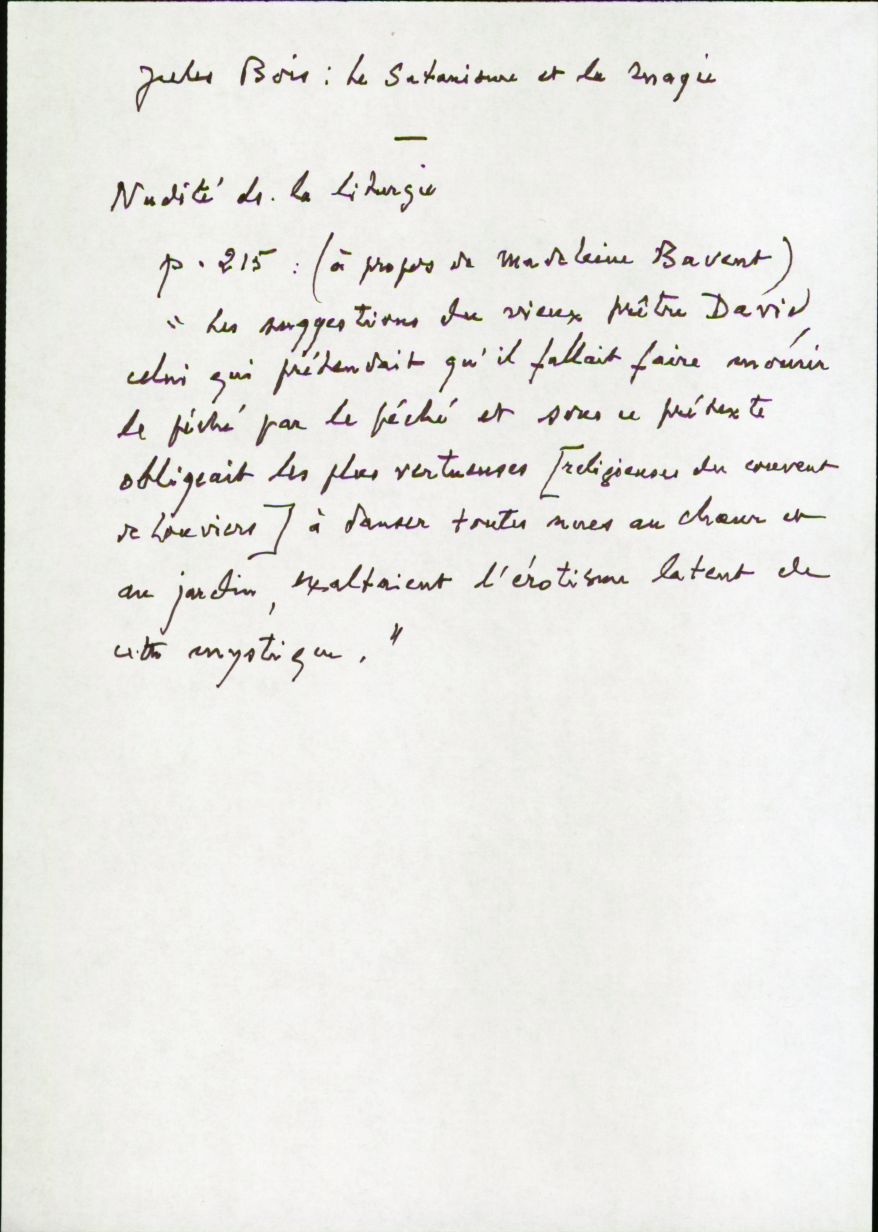 Jules Bois : Le Satanisme et la magie
—
Nudité ds. la liturgie
p. 215 : (à propos de Madeleine Bavent)
" Les suggestions du vieux prêtre David,
celui qui prétendait qu'il fallait faire mourir
le péché par le péché et sous ce prétexte
obligeait les plus vertueuses [religieuses du couvent
de Louviers] à danser toutes nues au chœur et
au jardin, exaltaient l'érotisme latent de
cette mystique. "